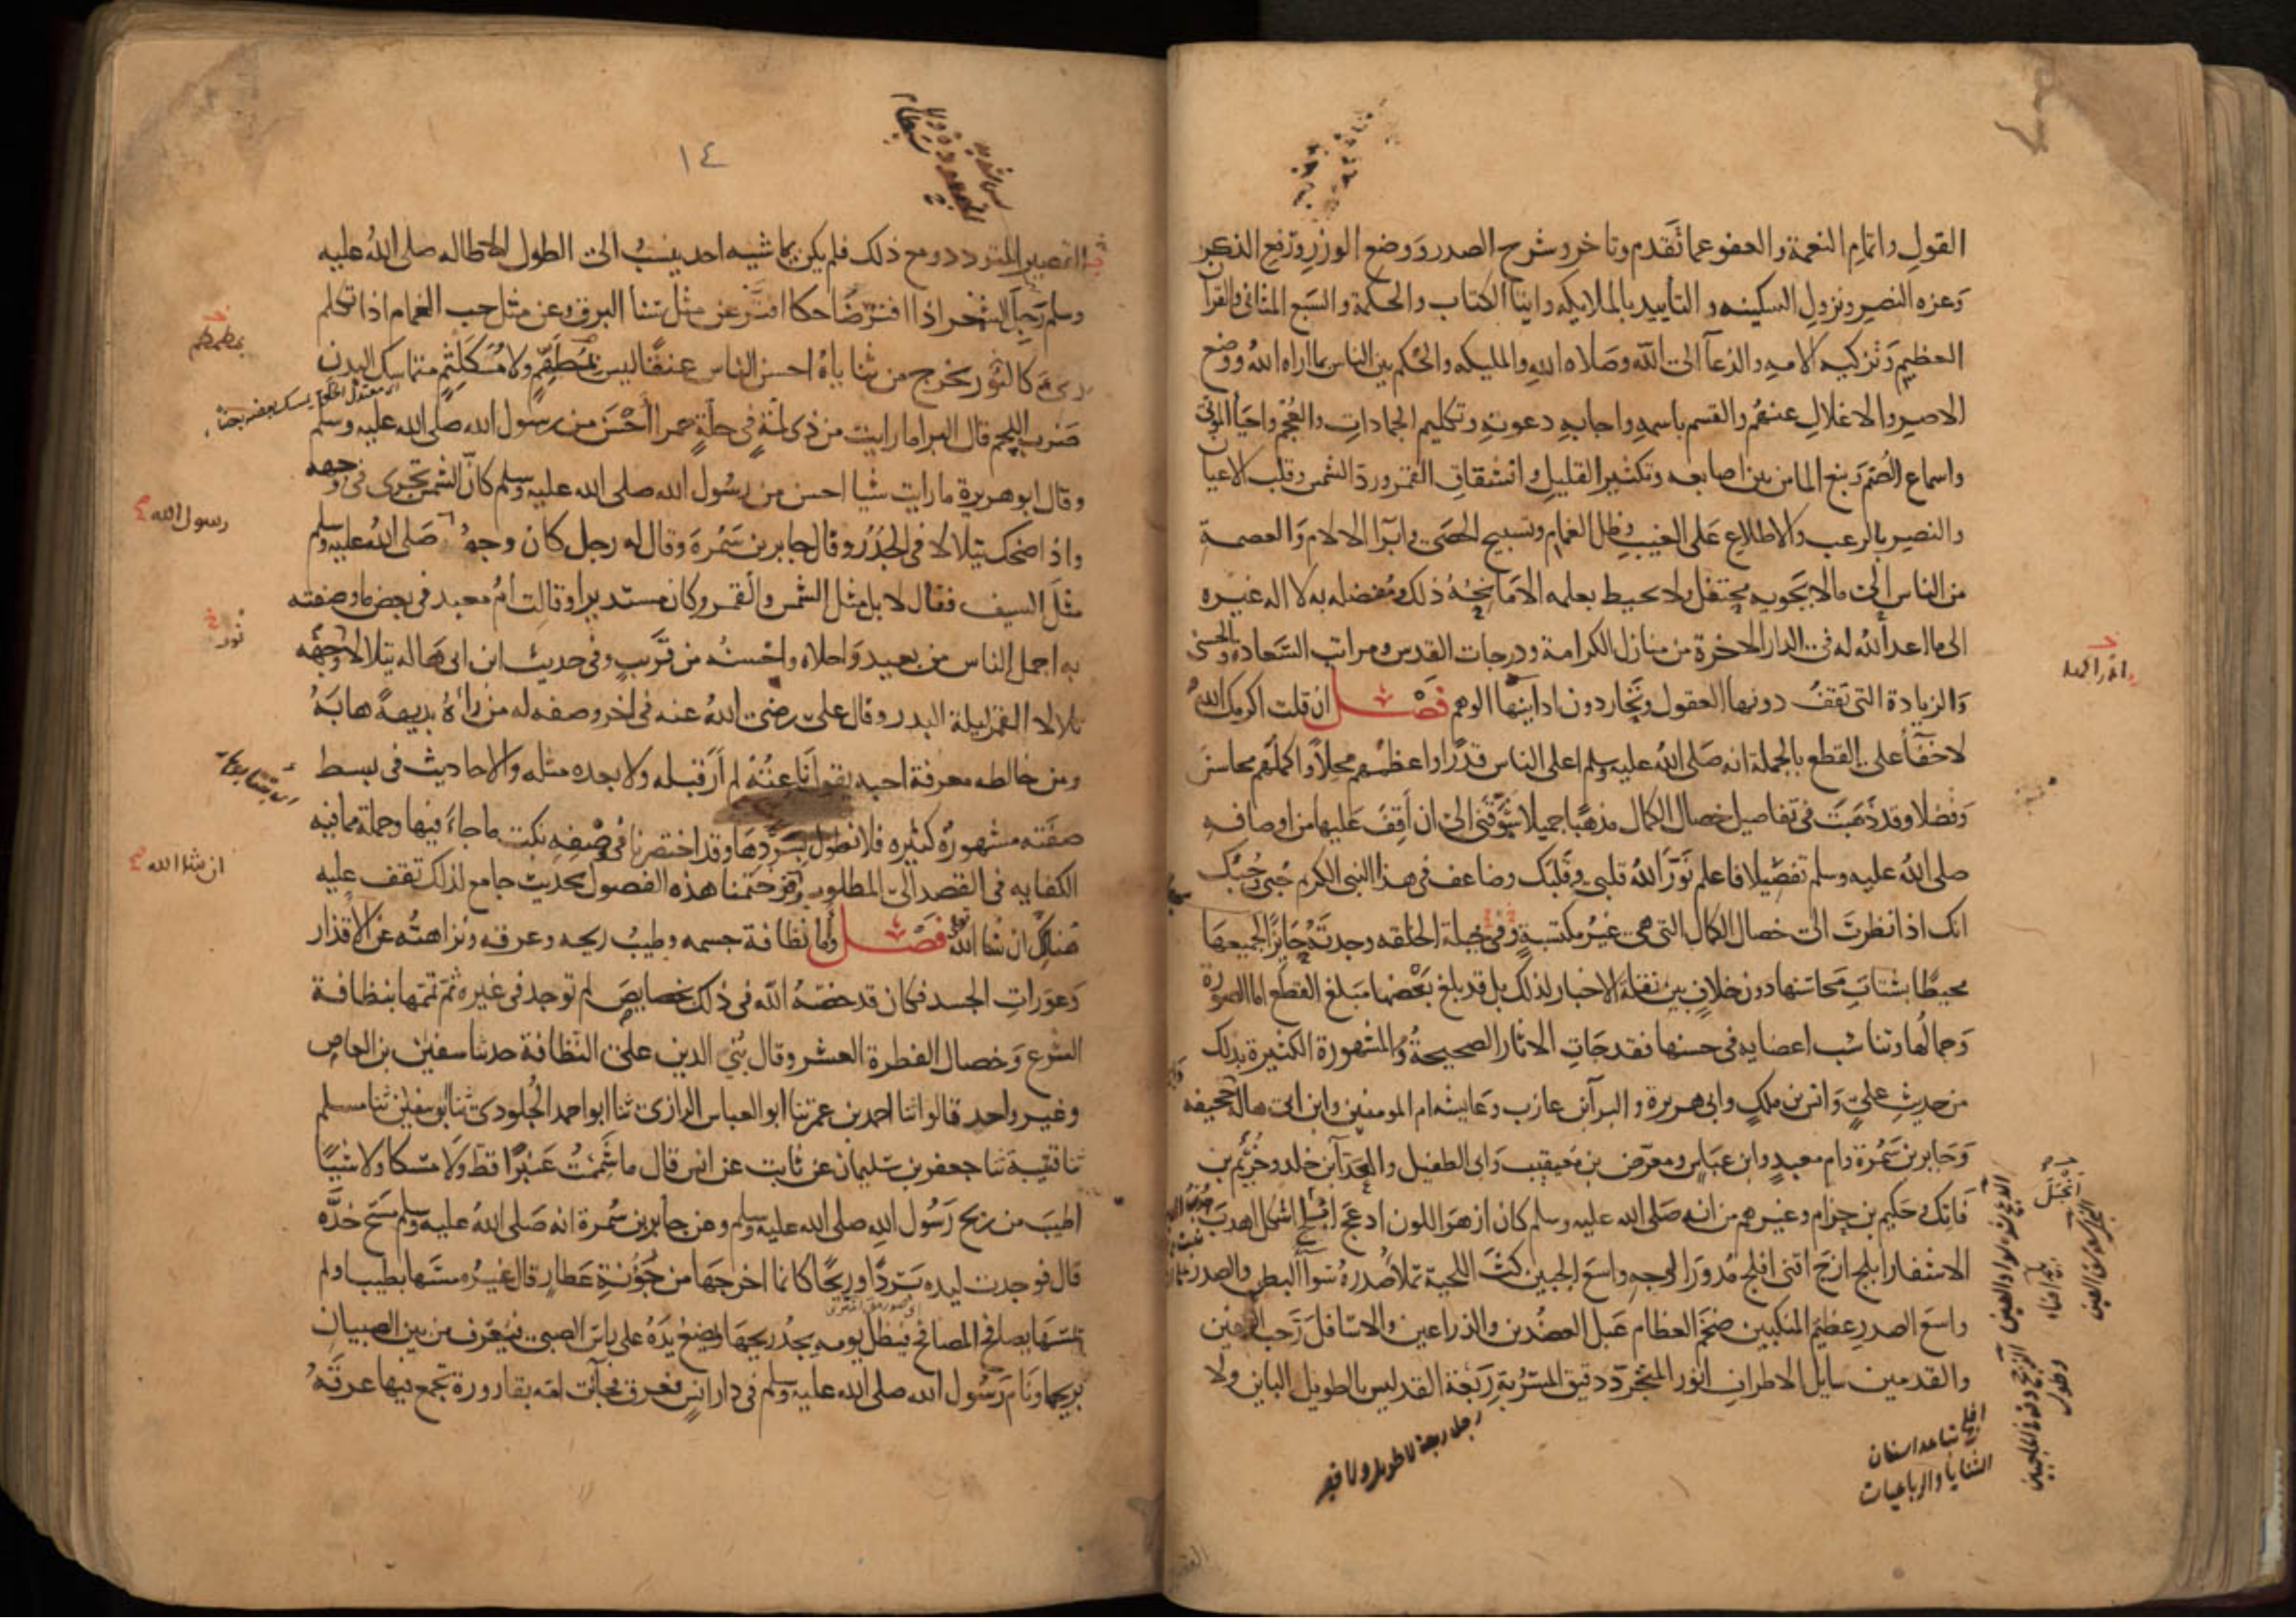 القول واتمام النعمة والعفو عما تقدم وتاخر وشرح الصدر ووضع الوزر ورفع الذكر
وعزه النصر ونزول السكينه والتاييد بالملايكه وايتا الكتاب والحكمة والسبع المثاني والقرآ
العظيم وتزكيه الامه والدعآ الى الله وصلاه الله والمليكه والحكم بين الناس بما اراه الله ووضع
الاصر والاغلال عنهم والقسم باسمه واجابه دعوته وتكليم الجمادات والعجم واحيآ الموتى
واسماع الصم ونبع الما من بين اصابعه وتكثير القليل وانشقاق القمر ورد الشمس وقلب الاعيا
والنصر بالرعب والاطلاع على الغيب وظل الغمام وتسبيح الحصى وابرآ الالام والعصمة
من الناس الى ما لا يحويه محتفل ولا يحيط بعلمه الا مانحه ذلك ومفضله به لا اله غيره
الى ما اعد الله له في الدار الاخرة من منازل الكرامة ودرجات القدس ومراتب السعاده والحسنى
والزيادة التي تقف دونها العقول ويحار دون ادانيها الوهم فصل ان قلت اكرمك الله
لا خفآ على القطع بالجملة انه صلى الله عليه وسلم اعلى الناس قدرا واعظمهم محلا واكملهم محاسن
وفضلا وقد ذهبت في تفاصيل خصال الكمال مذهبا جميلا شوقني الى ان اقف عليها من اوصافه
صلى الله عليه وسلم تفصيلا فاعلم نور الله قلبي وقلبك وضاعف في هذا النبي الكريم حبي وحبك
انك اذا نظرت الى خصال الكمال التي هي غير مكتسبة وفي جبلة الخلقه وجدته حايزا لجميعها
محيطا بشتات محاسنها دون خلاف بين نقلة الاخبار لذلك بل قد بلغ بعضها مبلغ القطع اما الصورة
وجمالها وتناسب اعضايه في حسنها فقد جات الاثار الصحيحة والمشهورة الكثيرة بذلك
من حديث علي وانس بن ملك وابي هريرة والبرآ بن عازب وعايشه ام المومنين وابن ابي هالة وابي جحيفه
وجابر بن سمرة وام معبد وابن عباس ومعرض بن معيقيب وابي الطفيل والعدآ بن خلد وخريم بن
فاتك وحكيم بن حزام وغيرهم من انه صلى الله عليه وسلم كان ازهر اللون ادعج انجل اشكل اهدب
الاشفار ابلج ازج اقنى افلج مدور الوجه واسع الجبين كث اللحية تملا صدره سوآ البطن والصدر
واسع الصدر عظيم المنكبين ضخم العظام عبل العضدين والذراعين والاسافل رحب الكفين
والقدمين سايل الاطراف انور المتجرد دقيق المسربة ربعة القد ليس بالطويل الباين ولا
رجل ربعة لا طويل ولا قصير
افلج تباعد اسنان
الثنايا والرباعيات
١٤
القصير المتردد ومع ذلك فلم يكن يماشيه احد ينسب الى الطول الا طاله صلى الله عليه
وسلم رجل الشعر اذا افتر ضاحكا افتر عن مثل سنا البرق وعن مثل حب الغمام اذا تكلم
رىء كالنور يخرج من ثناياه احسن الناس عنقا ليس بمطهم ولا مكلثم متماسك البدن
ضرب اللحم قال البرا ما رايت من ذي لمة في حلة حمرا احسن من رسول الله صلى الله عليه وسلم
وقال ابو هريرة ما رايت شيا احسن من رسول الله صلى الله عليه وسلم كان الشمس تجري في وجهه
واذا ضحك يتلالا في الجدر وقال جابر بن سمرة وقال له رجل كان وجه صلى الله عليه وسلم
رسول الله
مثل السيف فقال لا بل مثل الشمس والقمر وكان مستديرا وقالت ام معبد في بعض ما وصفته
به اجمل الناس من بعيد واحلاه واحسنه من قريب وفي حديث ابن ابي هاله يتلالا وجهه
تلالا القمر ليلة البدر وقال علي رضي الله عنه في اخر وصفه له من رآه بديهة هابه
ومن خالطه معرفة احبه يقول ناعته لم ار قبله ولا بعده مثله والاحاديث في بسط
صفته مشهورة كثيره فلا نطول بسردها وقد اختصرنا في وصفه نكت ما جاء فيها وجملة مما فيه
الكفايه في القصد الى المطلوب وختمنا هذه الفصول بحديث جامع لذلك تقف عليه
ان شا الله
هناك ان شا الله فصل واما نظافة جسمه وطيب ريحه وعرقه ونزاهته عن الاقذار
وعورات الجسد فكان قد خصه الله في ذلك بخصايص لم توجد في غيره ثم تممها بنظافة
الشرع وخصال الفطرة العشر وقال بني الدين على النظافة حدثنا سفين بن العاص
وغير واحد قالوا ثنا احمد بن عمر ثنا ابو العباس الرازي ثنا ابو احمد الجلودي ثنا ابو سفين ثنا مسلم
ثنا قتيبة ثنا جعفر بن سليمان عن ثابت عن انس قال ما شممت عنبرا قط ولا مسكا ولا شيا
اطيب من ريح رسول الله صلى الله عليه وسلم وعن جابر بن سمرة انه صلى الله عليه وسلم مسح خده
قال فوجدت ليده بردا وريحا كانما اخرجها من جؤنة عطار قال غيره مسها بطيب او لم
يمسها يصافح المصافح فيظل يومه يجد ريحها ويضع يده على راس الصبي فيعرف من بين الصبيان
بريحها ونام رسول الله صلى الله عليه وسلم في دار انس فعرق فجآت امه بقارورة تجمع فيها عرقه